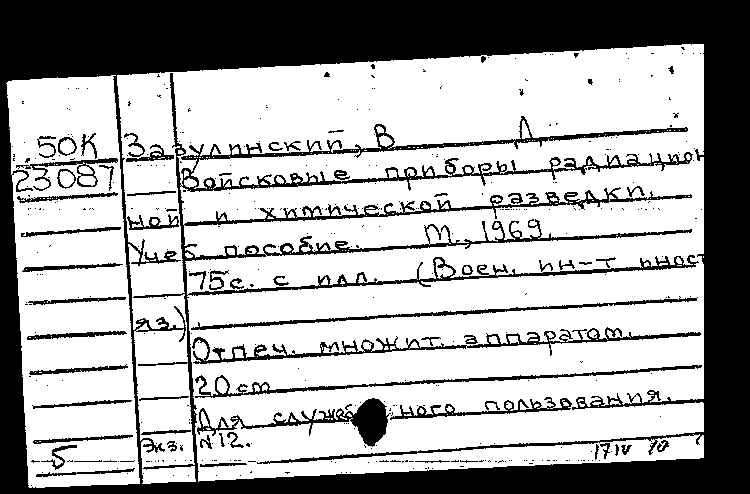 50К Завулинский, В Л.
23087 Войсковые приборы радиацион
ной и химической разведки.
Учеб. пособие. М., 1969.
75с. с илл. (Воен. ин-т иност
яз.).
Отпеч. множит. аппаратом.
20 см
Для служебного пользования.
Экз. №12.
5